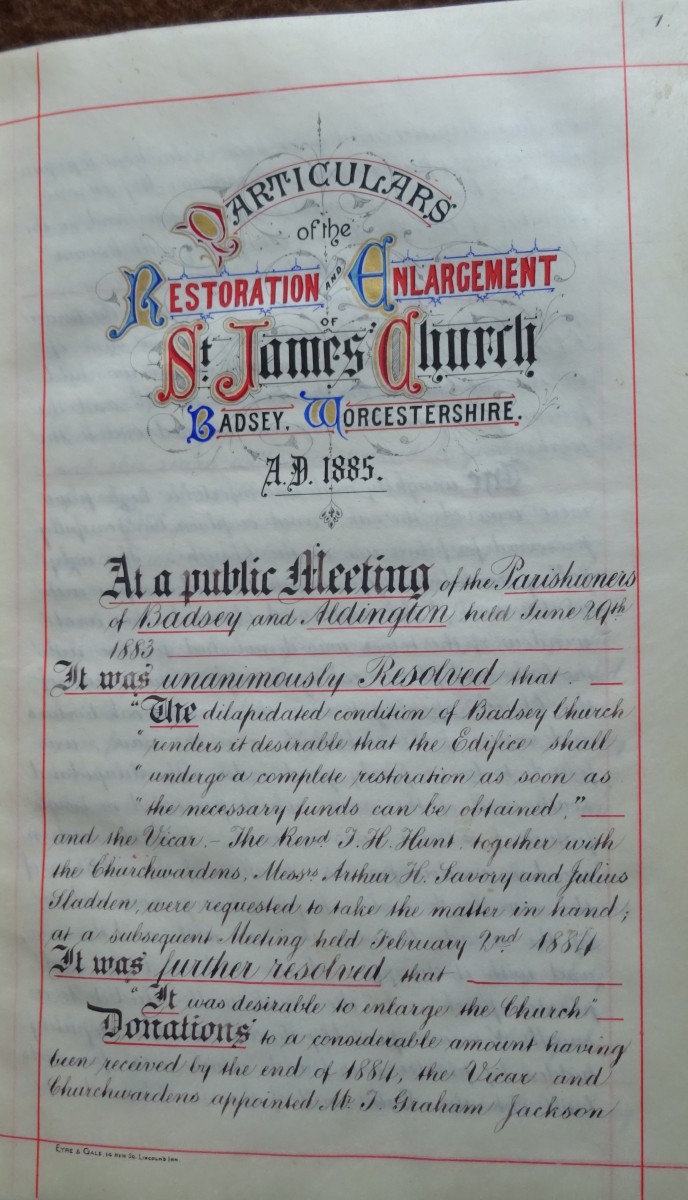 1.
PARTICULARS
of the
RESTORATION AND ENLARGEMENT
OF
St. James' Church
BADSEY, WORCESTERSHIRE.
A.D. 1885.
At a public Meeting of the Parishioners
of Badsey and Aldington held June 29th
1883
It was unanimously Resolved that
"The dilapidated condition of Badsey Church
"renders it desirable that the Edifice shall
"undergo a complete restoration as soon as
"the necessary funds can be obtained,"
and the Vicar – The Revd. T. H. Hunt, together with
the Churchwardens, Messrs Arthur H. Savory and Julius
Sladden, were requested to take the matter in hand;
at a subsequent Meeting held February 2nd 1884
It was further resolved that
"It was desirable to enlarge the Church"
Donations to a considerable amount having
been received by the end of 1884, the Vicar and
Churchwardens appointed Mr. T. Graham Jackson
EYRE & GALE, NEW SQ. LINCOLN'S INN